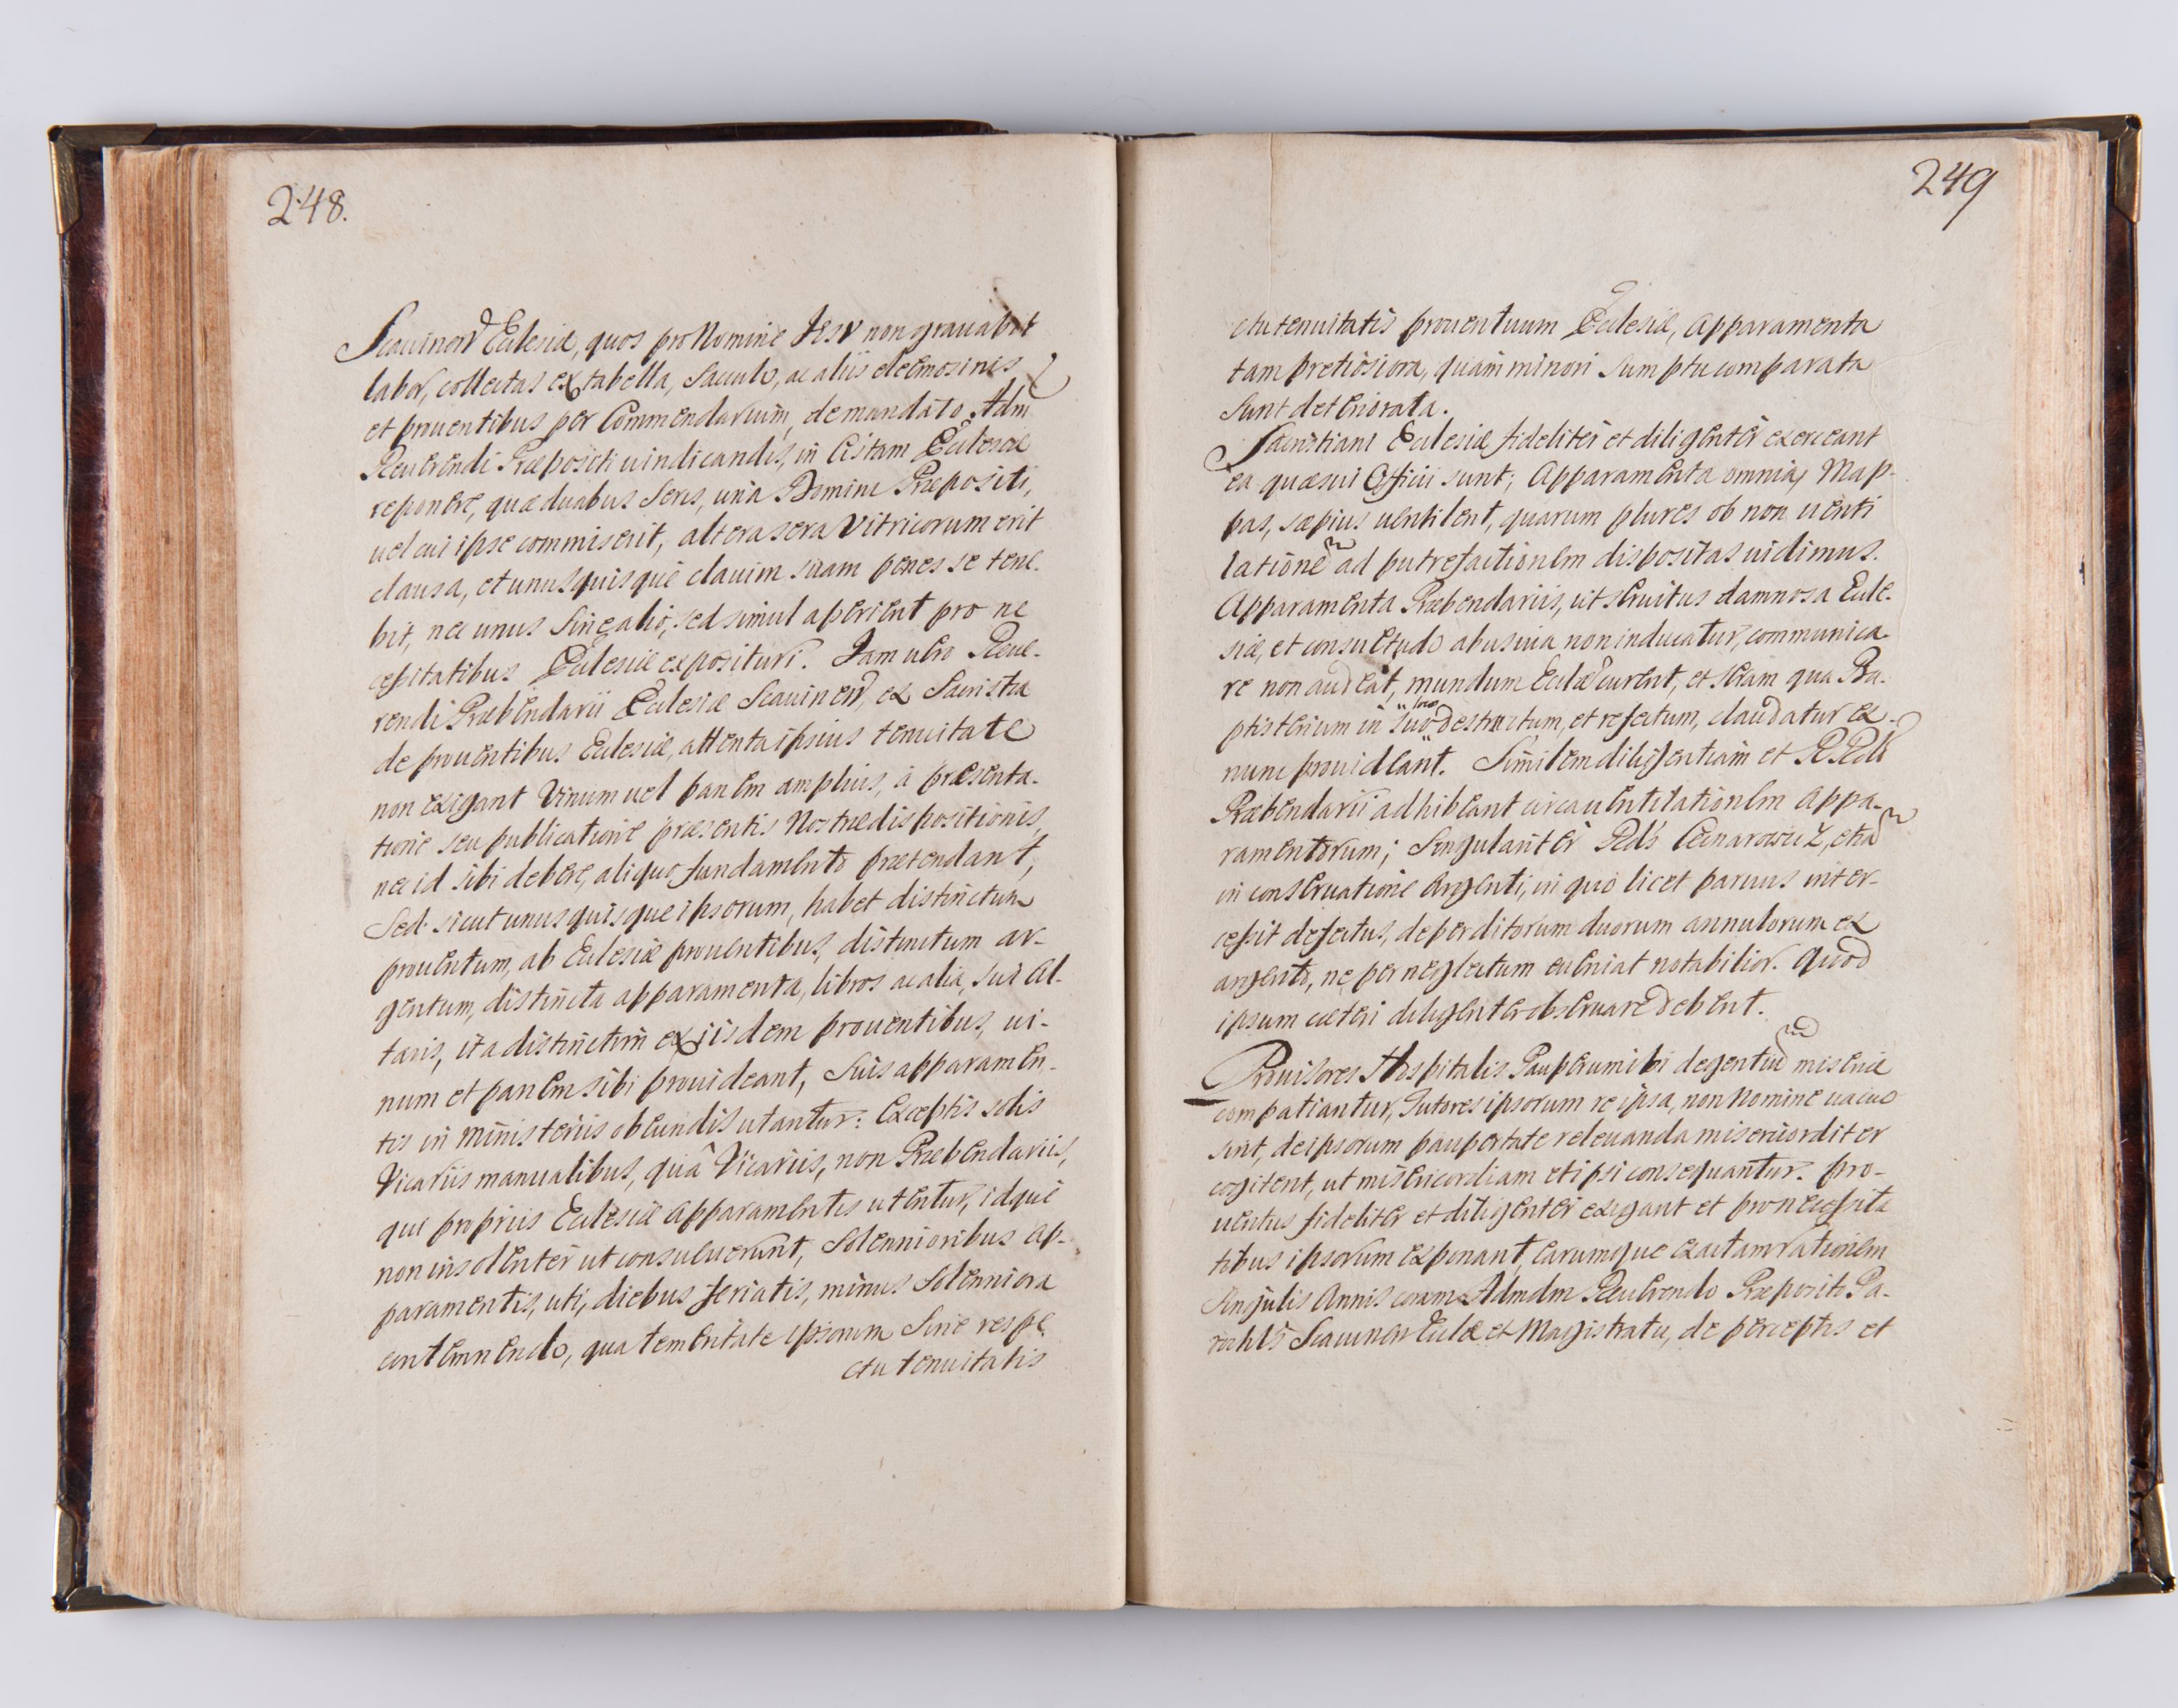 248.
Scauinen Eclesiæ, quos pro Nomine Jesv non grauabit
labor, collectas ex tabella, Sacculo, ac aliis eleemosinis,
et prouentibus per Commendarium, de mandato Adm
Reuerendi Præpositi uindicandis, in Cistam Eclesiæ
reponere, quæ duabus Seris, una Domini Præpositi,
uel cui ipse commiserit, altera sera Vitricorum erit
clausa, et unusquisque clauim suam penes se tene-
bit, nec unus sine alio, sed simul aperient pro ne
cessitatibus Eclesiæ exposituri. Jam uero Reue-
rendi Præbendarii Eclesiæ Scauinen, ex Sacristia
de prouentibus Eclesiæ, attenta ipsius tenuitate
non exigant Vinum uel panem amplius, à præsenta-
tione seu publicatione præsentis Nostræ dispositionis,
nec id sibi debere, aliquo fundamento prætendant,
Sed sicut unusquisque ipsorum, habet distinctum
prouentum, ab Eclesiæ prouentibus, distinctum ar-
gentum, distincta apparamenta, libros ac alia, sui Al-
taris, ita distinctim ex iisdem prouentibus, ui-
num et panem sibi prouideant, suis apparamen-
tis in ministeriis obeundis utantur: Exceptis solis
Vicariis manualibus, quâ Vicariis, non Præbendariis,
qui propriis Eclesiæ Apparamentis utentur, idque
non insolenter ut consueuerunt, Solennioribus ap-
paramentis, uti, diebus feriatis, minus Solenniora
contemnendo, qua temeritate ipsorum Sine respe
ctu tenuitatis
249
ctu tenuitatis prouentuum Eclesiæ, Apparamenta
tam pretiosiora, quam minori Sumptu comparata
sunt deteriorata.
Sacristiani Eclesiæ fideliter et diligenter exerceant
ea quæ sui Officii sunt; Apparamenta omnia, Map-
pas, sæpius uentilent, quarum plures ob non uenti
latione ad putrefactionem dispositas uidimus.
Apparamenta Præbendariis, ut seruitus damnosa Ecle-
siæ, et consuetudo abusiua non inducatur, communica-
re non audeat, mundum Eclæ curent, et seram qua Ba-
ptisterium in suo foro destructum, et refectum, claudatur ex-
nunc prouideant. Similem diligentiam et RRdi
Præbendarii adhibeant circa uentilationem Appa-
ramentorum; Singulariter Rds Ceinarowicz, etia
in conseruatione Argenti, in quo licet paruus inter-
cessit defectus, deperditorum duorum annulorum ex
argento, ne per neglectum eueniat notabilior. Quod
ipsum cæteri diligenter obseruare debent.
Prouisores Hospitalis Pauperum ibi degentiu miseriæ
compatiantur, Tutores ipsorum re ipsa, non Nomine uacuo
sint, de ipsorum paupertate releuanda misericorditer
cogitent, ut misericordiam et ipsi consequantur. Pro-
uentus fideliter et diligenter exigant et pro necessita
tibus ipsorum exponant, earumque exactam rationem
Singulis Annis coram Admdm Reuerendo Præposito Pa-
rochis Scauinen Eclæ et Magistratu, de perceptis et